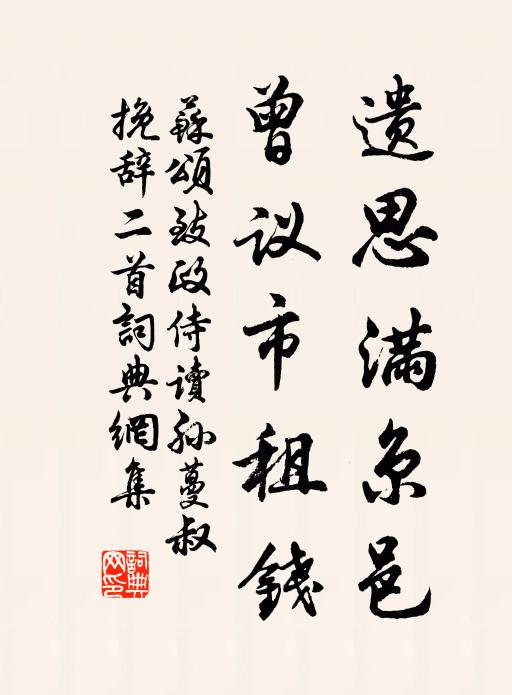 遗思满京邑
曾议市租錢
蘇頌致政侍讀孙蔓叔
挽辞二首詞典網集
詞典网印